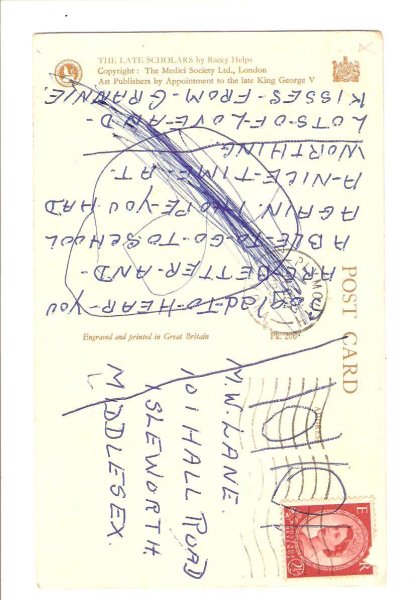 THE LATE SCHOLARS by Racey Helps
Copyright: The Medici Society Ltd., London
Art Publishers by Appointment to the late King George V
glad-TO-HEAR-YOU
ARE-BETTER-AND-
ABLE-TO-GO-TO-SCHOOL
AGAIN. I HOPE-YOU HAD
A-NICE-TIME-AT-
WORTHING.
LOTS-OF-LOVE-AND-
KISSES-FROM-GRANNIE.
Engraved and printed in Great Britain
Pk. 200
POST CARD
ADDRESS
M.W. LANE.
101 HALL ROAD
ISLEWORTH.
MIDDLESEX.
E R
2½